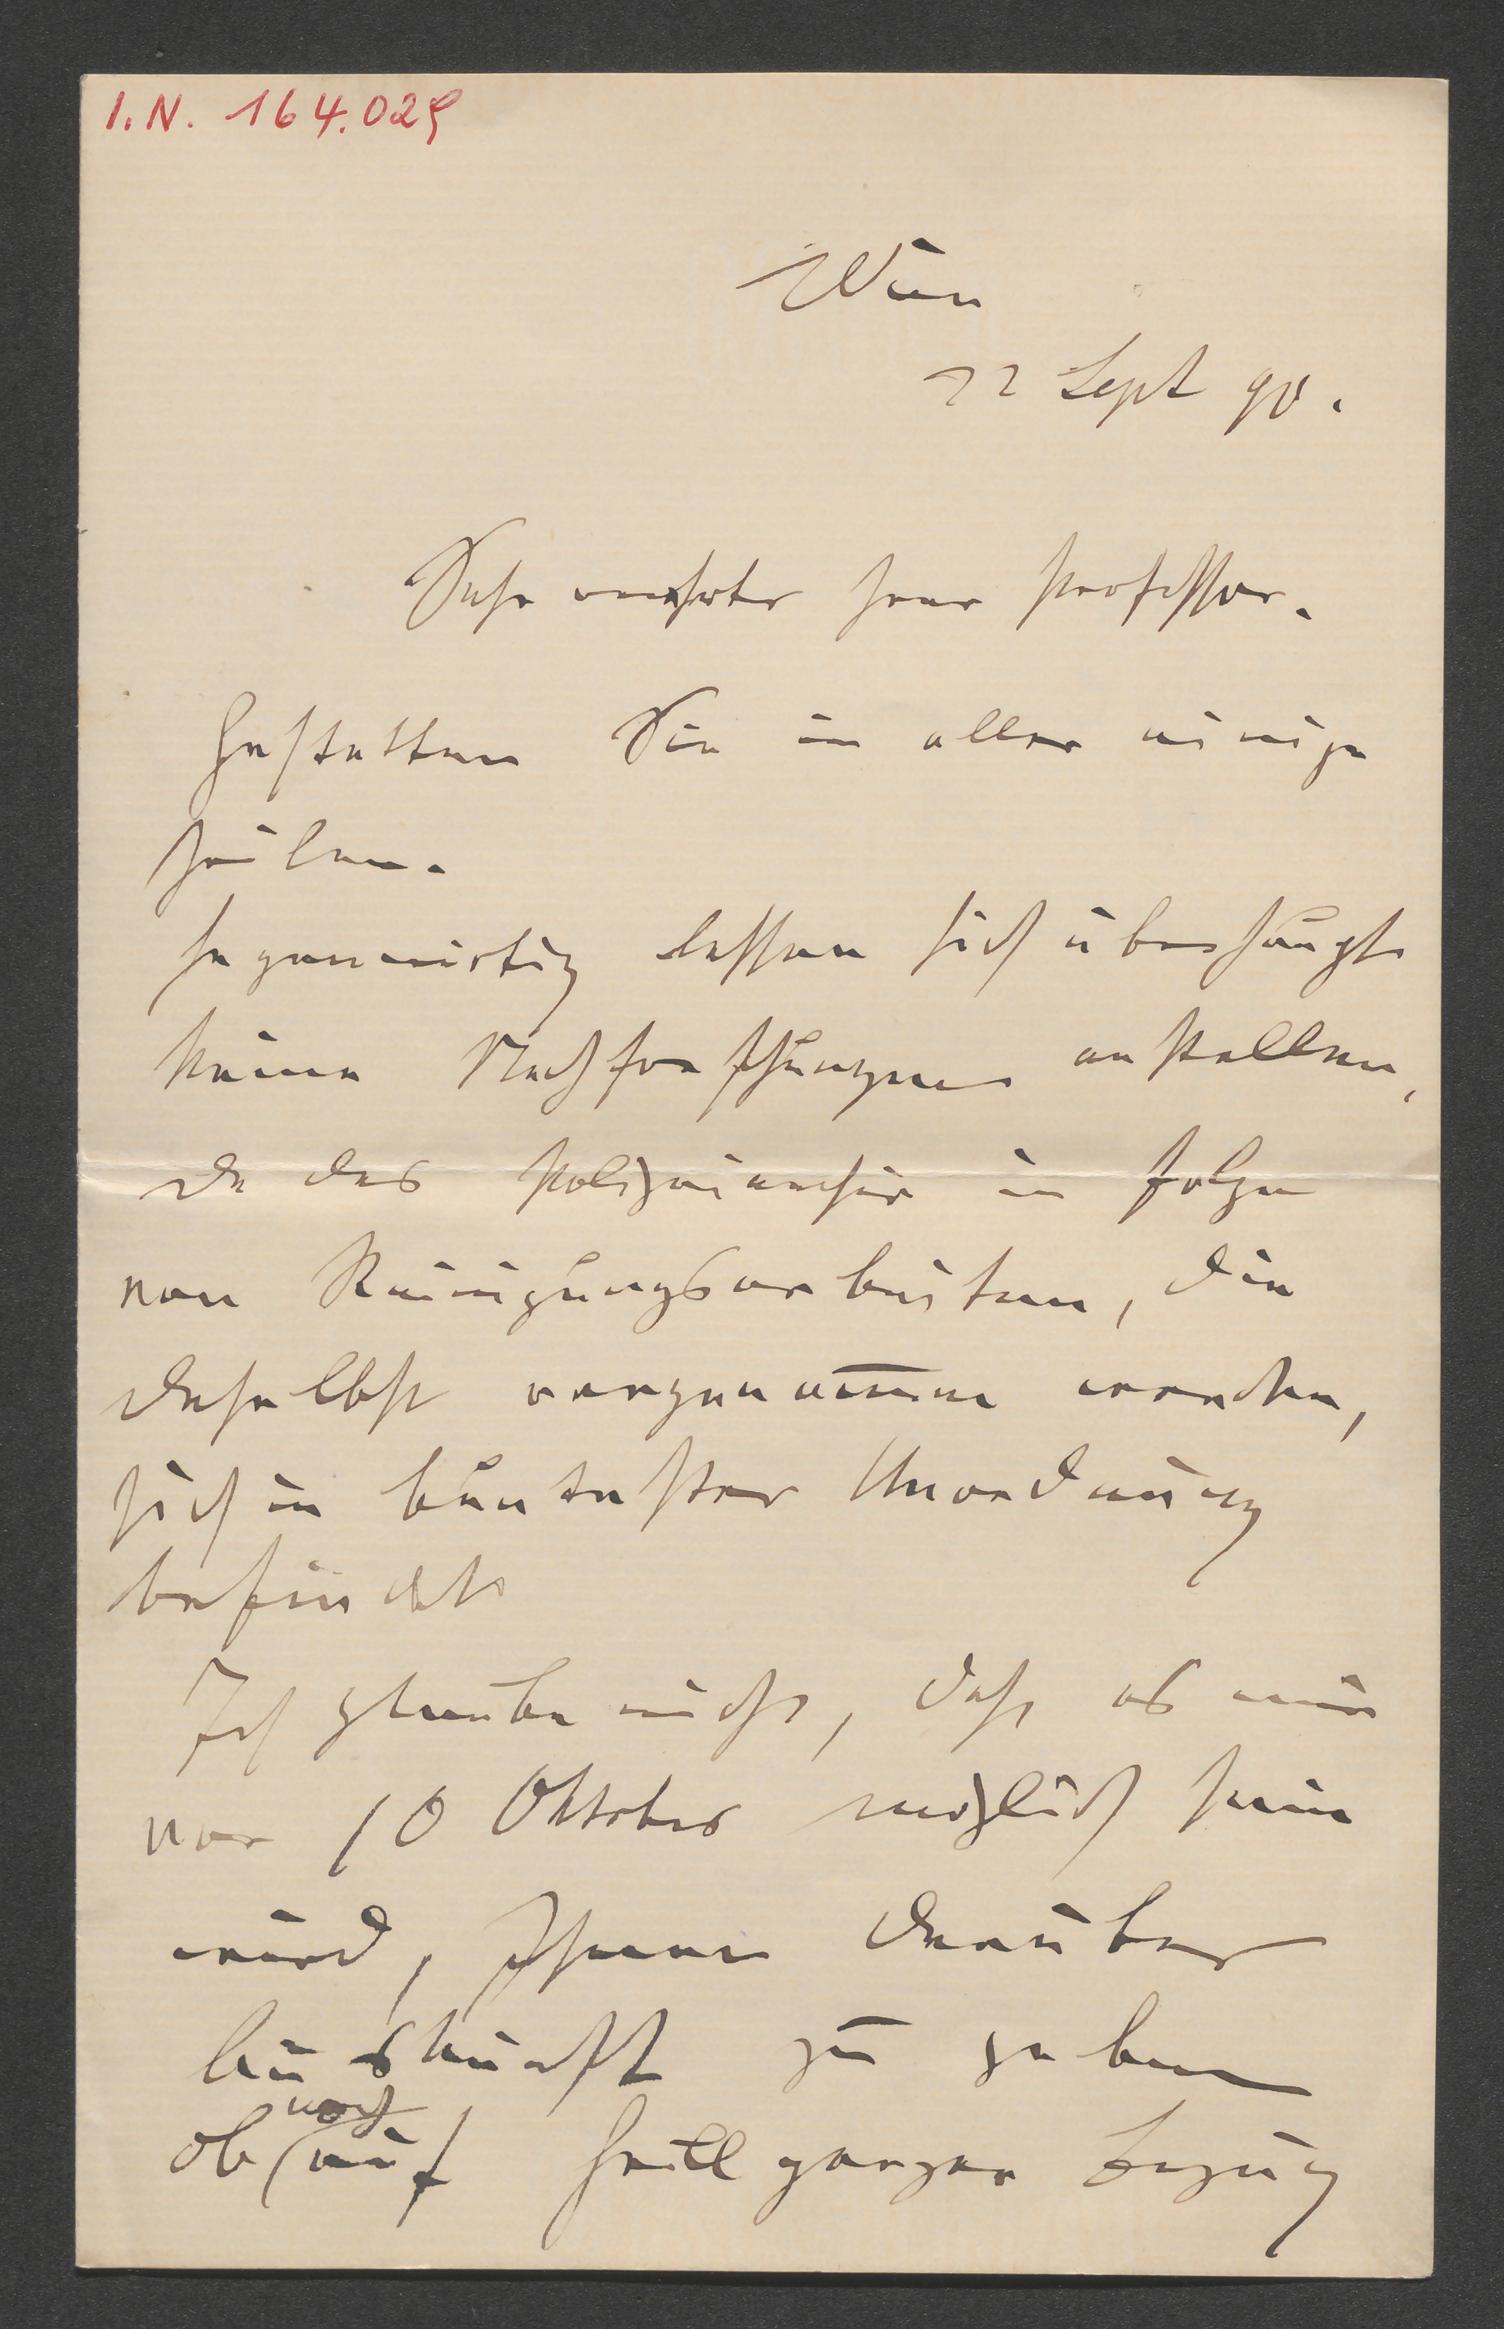 I.N. 164.029
Wien
22 Sept 90.
Sehr verehrter Herr Professor.
Gestatten Sie in aller einige
Zeilen.
Gegenwärtig lassen sich überhaupt
keine Nachforschungen anstellen,
da das Polizeiarchiv in Folge
von Reinigungsarbeiten, die
daselbst vorgenom̅en werden,
sich in buntester Unordnung
befindet
Ich glaube nicht, daß es mir
vor 10 Oktober möglich sein
wird, Ihnen darüber
Auskunft zu geben
noch
ob auf Grillparzer Bezug